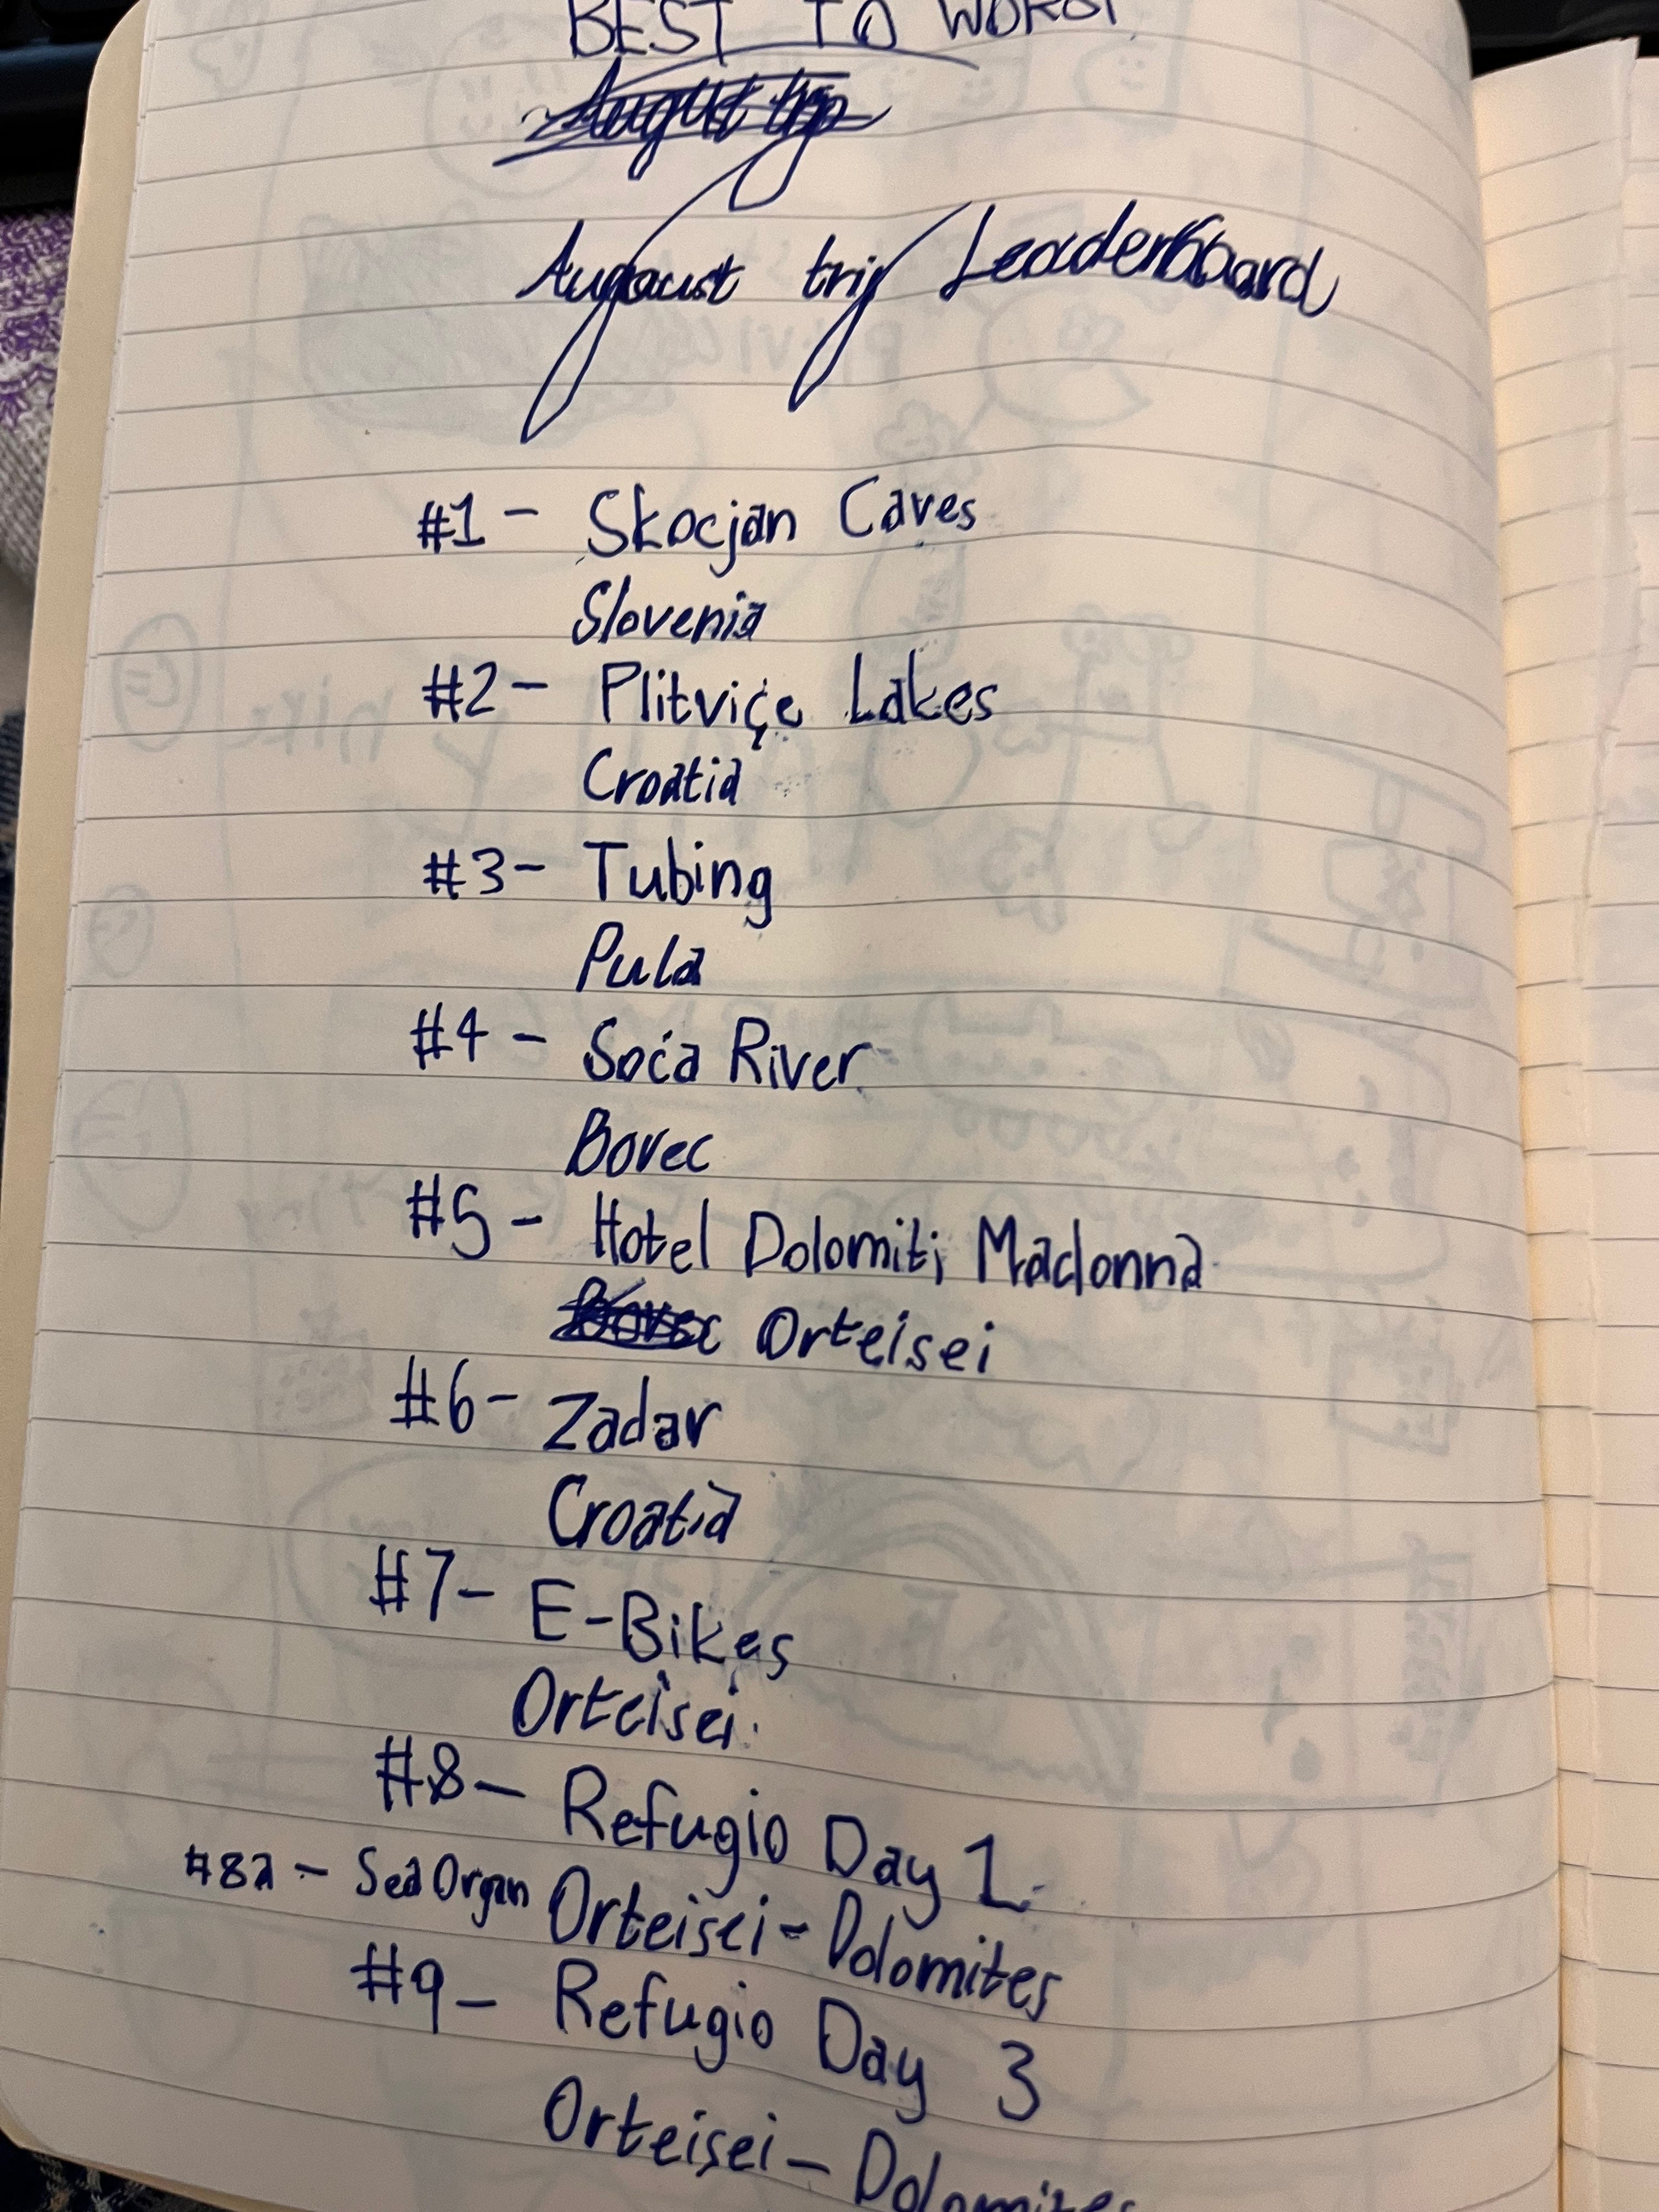 BEST TO WORST
August trip
August trip Leaderboard
#1 - Skocjan Caves
Slovenia
#2 - Plitviçe Lakes
Croatia
#3 - Tubing
Pula
#4 - Soća River
Bovec
#5 - Hotel Dolomiti Madonna
Bovec Orteisei
#6 - Zadar
Croatia
#7 - E-Bikes
Orteisei
#8 - Refugio Day 1
#8a - Sea Organ
Orteisei - Dolomites
#9 - Refugio Day 3
Orteisei - Dolomites